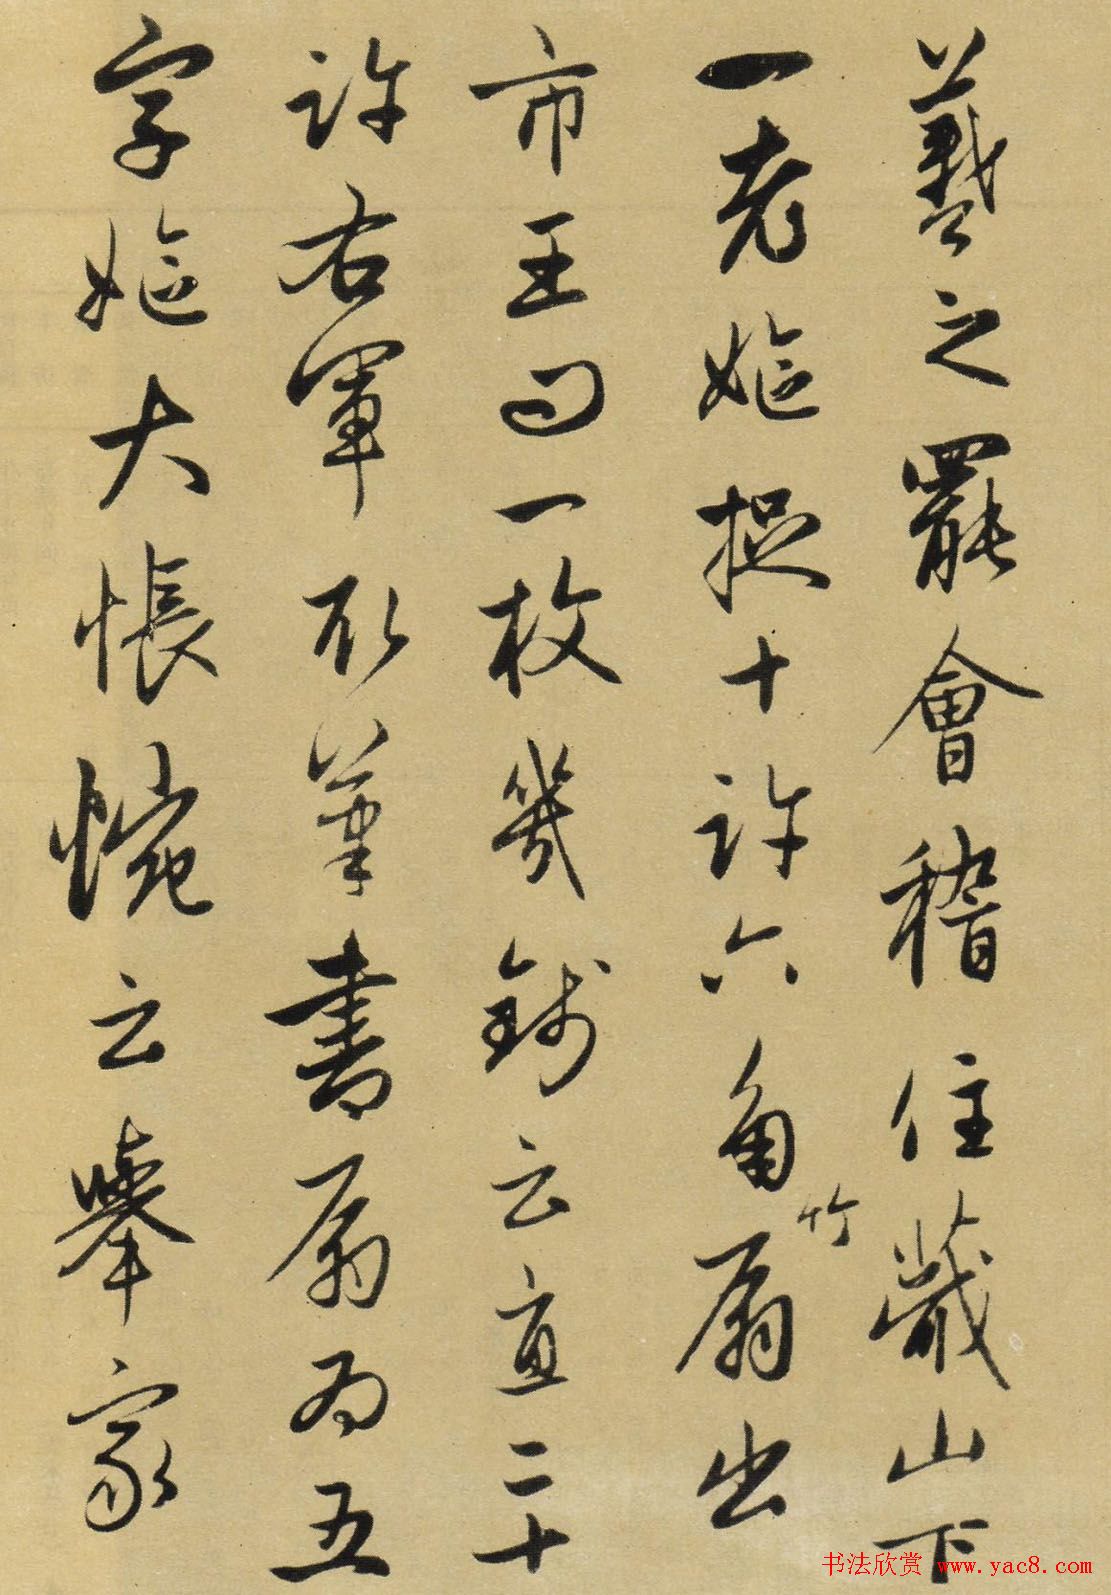 羲之罷會稽住蕺山下
一老嫗捉十許六角竹扇出
市王曰一枚幾錢云直二十
許右軍取筆書扇為五
字嫗大悵惋云舉家
书法欣赏 www.yac8.com